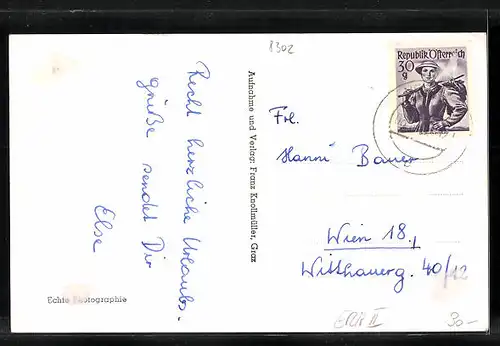 8302
Republik Österreich
30
g
Recht herzliche Urlaubs-
grüße sendet Dir
Else
Aufnahme und Verlag: Franz Knollmüller, Graz
Frl.
Hanni Bauer
Wien 18.,
Witthauerg. 40/12
Echte Photographie
30-